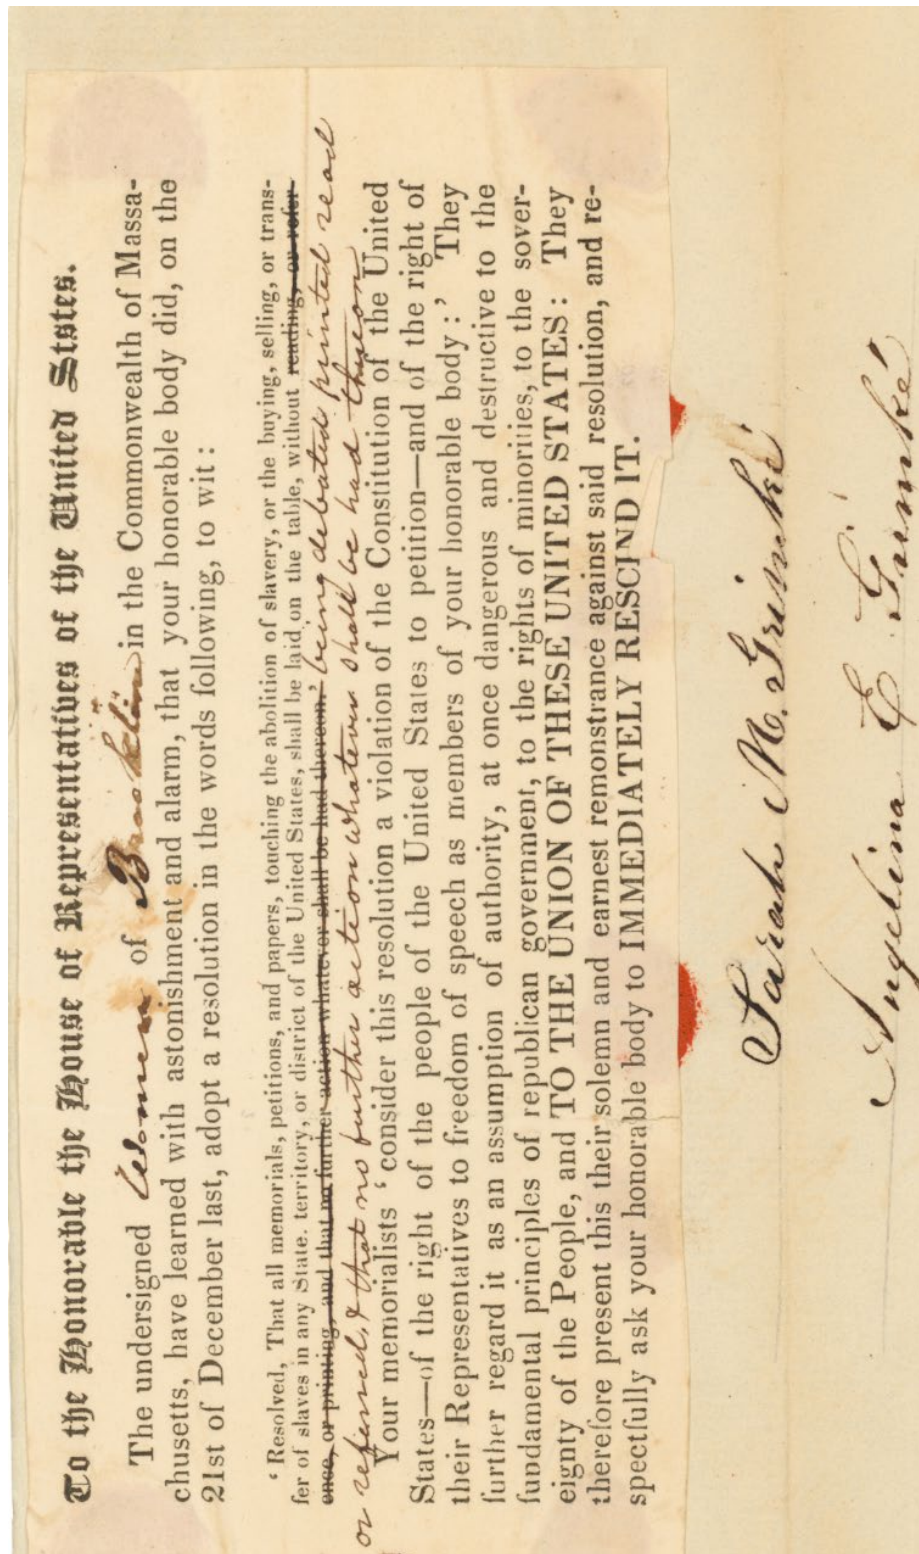 To the Honorable the House of Representatives of the United Ststes.
The undersigned Women of Brookline in the Commonwealth of Massa-
chusetts, have learned with astonishment and alarm, that your honorable body did, on the
21st of December last, adopt a resolution in the words following, to wit :
‘ Resolved, That all memorials, petitions, and papers, touching the abolition of slavery, or the buying, selling, or trans-
fer of slaves in any State. territory, or district of the United States, shall be laid on the table, without reading, or refer-
ence, or printing, and that no further action whatever shall be had thereon.’ being debated printed read
or refered, & that no further action whatever shall be had thereon
Your memorialists ‘ consider this resolution a violation of the Constitution of the United
States—of the right of the people of the United States to petition—and of the right of
their Representatives to freedom of speech as members of your honorable body : ’ They
further regard it as an assumption of authority, at once dangerous and destructive to the
fundamental principles of republican government, to the rights of minorities, to the sover-
eignty of the People, and TO THE UNION OF THESE UNITED STATES : They
therefore present this their solemn and earnest remonstrance against said resolution, and re-
spectfully ask your honorable body to IMMEDIATELY RESCIND IT.
Sarah M. Grimké
Angelina E. Grimké